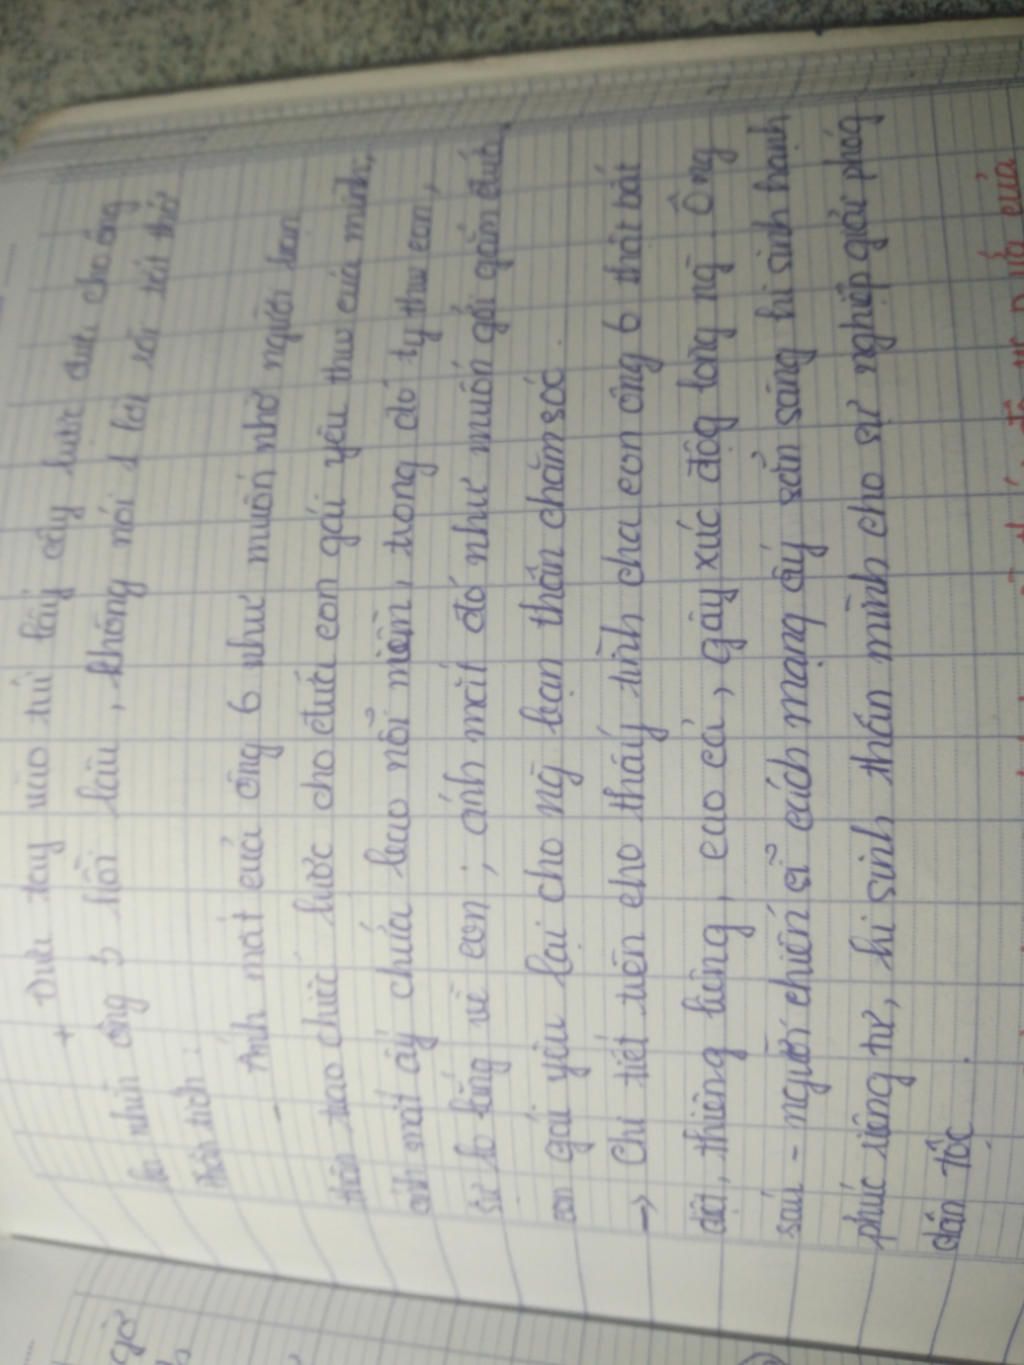 + Đưa tay vào túi lấy cây lược đưa cho ông
ba nhìn ông 3 hồi lâu, không nói 1 lời rồi tắt thở
Phân tích:
- Ánh mắt của ông 6 như muốn nhờ người bạn
thân trao chiếc lược cho đứa con gái yêu thư của mình,
ánh mắt ấy chứa bao nỗi niềm, trong đó ty thư con,
sự lo lắng về con; ánh mắt đó như muốn gởi gắm đứa
con gái yêu lại cho ng bạn thân chăm sóc.
→ Chi tiết trên cho thấy tình cha con ông 6 thật bất
diệt, thiêng liêng, cao cả, gây xúc động long ng Ông
sáu - người chiến sĩ cách mạng ấy sẵn sàng hi sinh hạnh
phúc riêng tư, hi sinh thân mình cho sự nghiệp giải phóg
dân tộc.
của
gờ